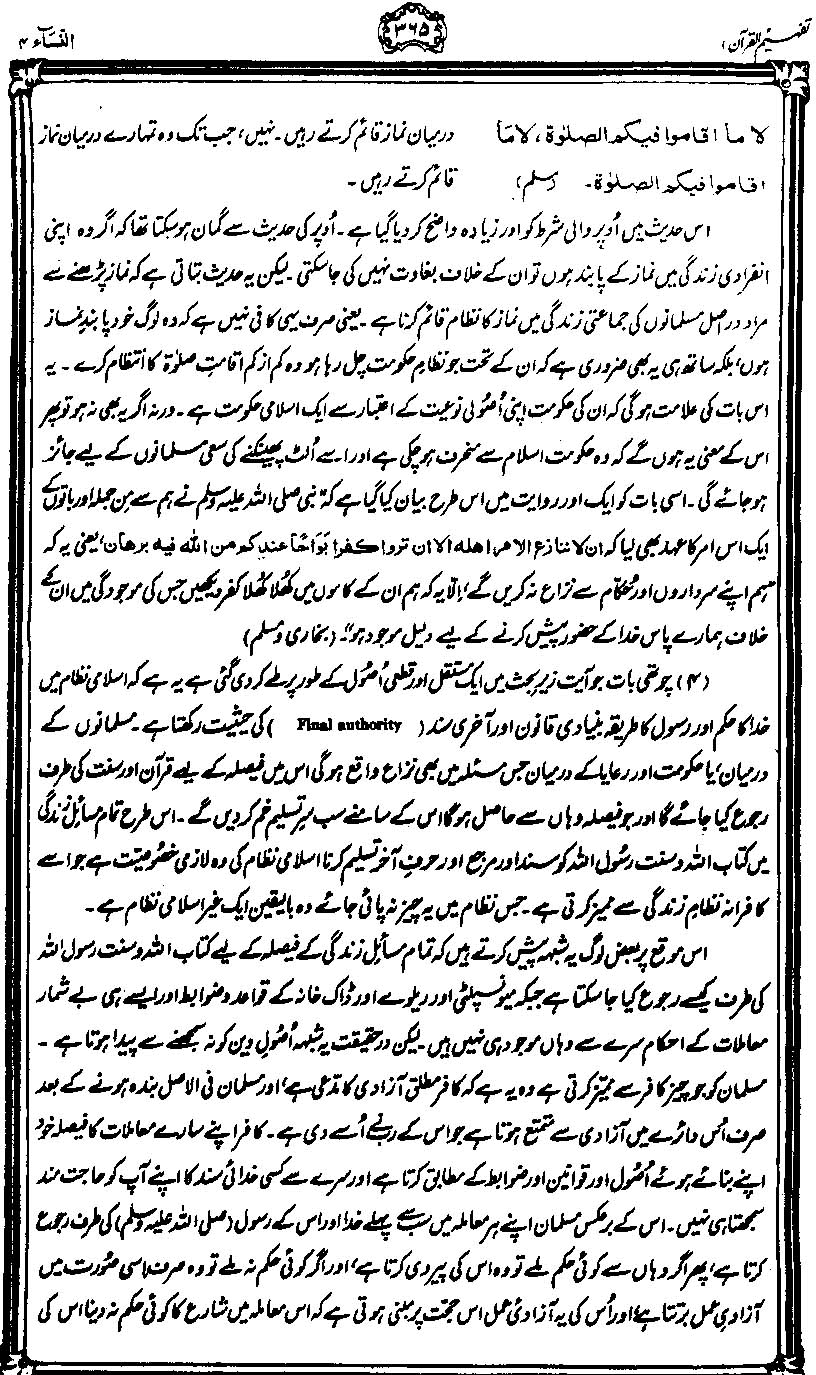 تفہیم القرآن ۱
۳۶۵
النساء ۴
لا ما اقاموا فیکم الصلوٰۃ، لا ما
اقاموا فیکم الصلوٰۃ۔ (مسلم)
درمیان نماز قائم کرتے رہیں۔ نہیں، جب تک وہ تمہارے درمیان نماز
قائم کرتے رہیں۔
اس حدیث میں اُوپر والی شرط کو اور زیادہ واضح کر دیا گیا ہے۔ اُوپر کی حدیث سے گمان ہو سکتا تھا کہ اگر وہ اپنی
انفرادی زندگی میں نماز کے پابند ہوں تو ان کے خلاف بغاوت نہیں کی جا سکتی۔ لیکن یہ حدیث بتاتی ہے کہ نماز پڑھنے سے
مراد دراصل مسلمانوں کی جماعتی زندگی میں نماز کا نظام قائم کرنا ہے۔ یعنی صرف یہی کافی نہیں ہے کہ وہ لوگ خود پابندِ نماز
ہوں، بلکہ ساتھ ہی یہ بھی ضروری ہے کہ ان کے تحت جو نظامِ حکومت چل رہا ہو وہ کم از کم اقامتِ صلوٰۃ کا انتظام کرے۔ یہ
اس بات کی علامت ہوگی کہ ان کی حکومت اپنی اُصولی نوعیت کے اعتبار سے ایک اسلامی حکومت ہے۔ ورنہ اگر یہ بھی نہ ہو تو پھر
اس کے معنی یہ ہوں گے کہ وہ حکومت اسلام سے منحرف ہو چکی ہے اور اسے اُلٹ پھینکنے کی سعی مسلمانوں کے لیے جائز
ہو جائے گی۔ اسی بات کو ایک اور روایت میں اس طرح بیان کیا گیا ہے کہ "نبی صلی اللہ علیہ وسلم نے ہم سے من جملہ اور باتوں کے
ایک اس امر کا عہد بھی لیا کہ ان لا ننازع الامر اھلہ الا ان تروا کفرا بَوَاحًا عندکم من اللہ فیہ برھان، یعنی یہ کہ
ہم اپنے سرداروں اور حُکّام سے نزاع نہ کریں گے، اِلّا یہ کہ ہم ان کے کاموں میں کُھلا کُھلا کفر دیکھیں جس کی موجودگی میں ان کے
خلاف ہمارے پاس خدا کے حضور پیش کرنے کے لیے دلیل موجود ہو"۔ (بخاری و مسلم)
(۴) چوتھی بات جو آیت زیرِ بحث میں ایک مستقل اور قطعی اُصول کے طور پر طے کر دی گئی ہے یہ ہے کہ اسلامی نظام میں
خدا کا حکم اور رسول کا طریقہ بنیادی قانون اور آخری سند ( Final authority ) کی حیثیت رکھتا ہے۔ مسلمانوں کے
درمیان، یا حکومت اور رعایا کے درمیان جس مسئلہ میں بھی نزاع واقع ہوگی اس میں فیصلہ کے لیے قرآن اور سنت کی طرف
رجوع کیا جائے گا اور جو فیصلہ وہاں سے حاصل ہوگا اس کے سامنے سب سرِ تسلیم خم کر دیں گے۔ اس طرح تمام مسائلِ زندگی
میں کتاب اللہ و سنت رسُول اللہ کو سند اور مرجع اور حرفِ آخر تسلیم کرنا اسلامی نظام کی وہ لازمی خصُوصیّت ہے جو اسے
کافرانہ نظامِ زندگی سے ممیّز کرتی ہے۔ جس نظام میں یہ چیز نہ پائی جائے وہ بالیقین ایک غیر اسلامی نظام ہے۔
اس موقع پر بعض لوگ یہ شبہہ پیش کرتے ہیں کہ تمام مسائلِ زندگی کے فیصلہ کے لیے کتاب اللہ و سنت رسول اللہ
کی طرف کیسے رجوع کیا جا سکتا ہے جبکہ میونسپلٹی اور ریلوے اور ڈاک خانہ کے قواعد و ضوابط اور ایسے ہی بے شمار
معاملات کے احکام سرے سے وہاں موجود ہی نہیں ہیں۔ لیکن درحقیقت یہ شبہہ اُصولِ دین کو نہ سمجھنے سے پیدا ہوتا ہے۔
مسلمان کو جو چیز کافر سے ممیّز کرتی ہے وہ یہ ہے کہ کافر مطلق آزادی کا مدّعی ہے، اور مسلمان فی الاصل بندہ ہونے کے بعد
صرف اُس دائرے میں آزادی سے متمتع ہوتا ہے جو اس کے رب نے اُسے دی ہے۔ کافر اپنے سارے معاملات کا فیصلہ خود
اپنے بنائے ہوئے اُصُول اور قوانین اور ضوابط کے مطابق کرتا ہے اور سرے سے کسی خدائی سند کا اپنے آپ کو حاجت مند
سمجھتا ہی نہیں۔ اس کے برعکس مسلمان اپنے ہر معاملہ میں سب سے پہلے خدا اور اس کے رسول (صلی اللہ علیہ وسلم) کی طرف رجوع
کرتا ہے، پھر اگر وہاں سے کوئی حکم ملے تو وہ اس کی پیروی کرتا ہے، اور اگر کوئی حکم نہ ملے تو وہ صرف اسی صُورت میں
آزادیِ عمل برتتا ہے، اور اُس کی یہ آزادیِ عمل اس حجّت پر مبنی ہوتی ہے کہ اس معاملہ میں شارع کا کوئی حکم نہ دینا اس کی